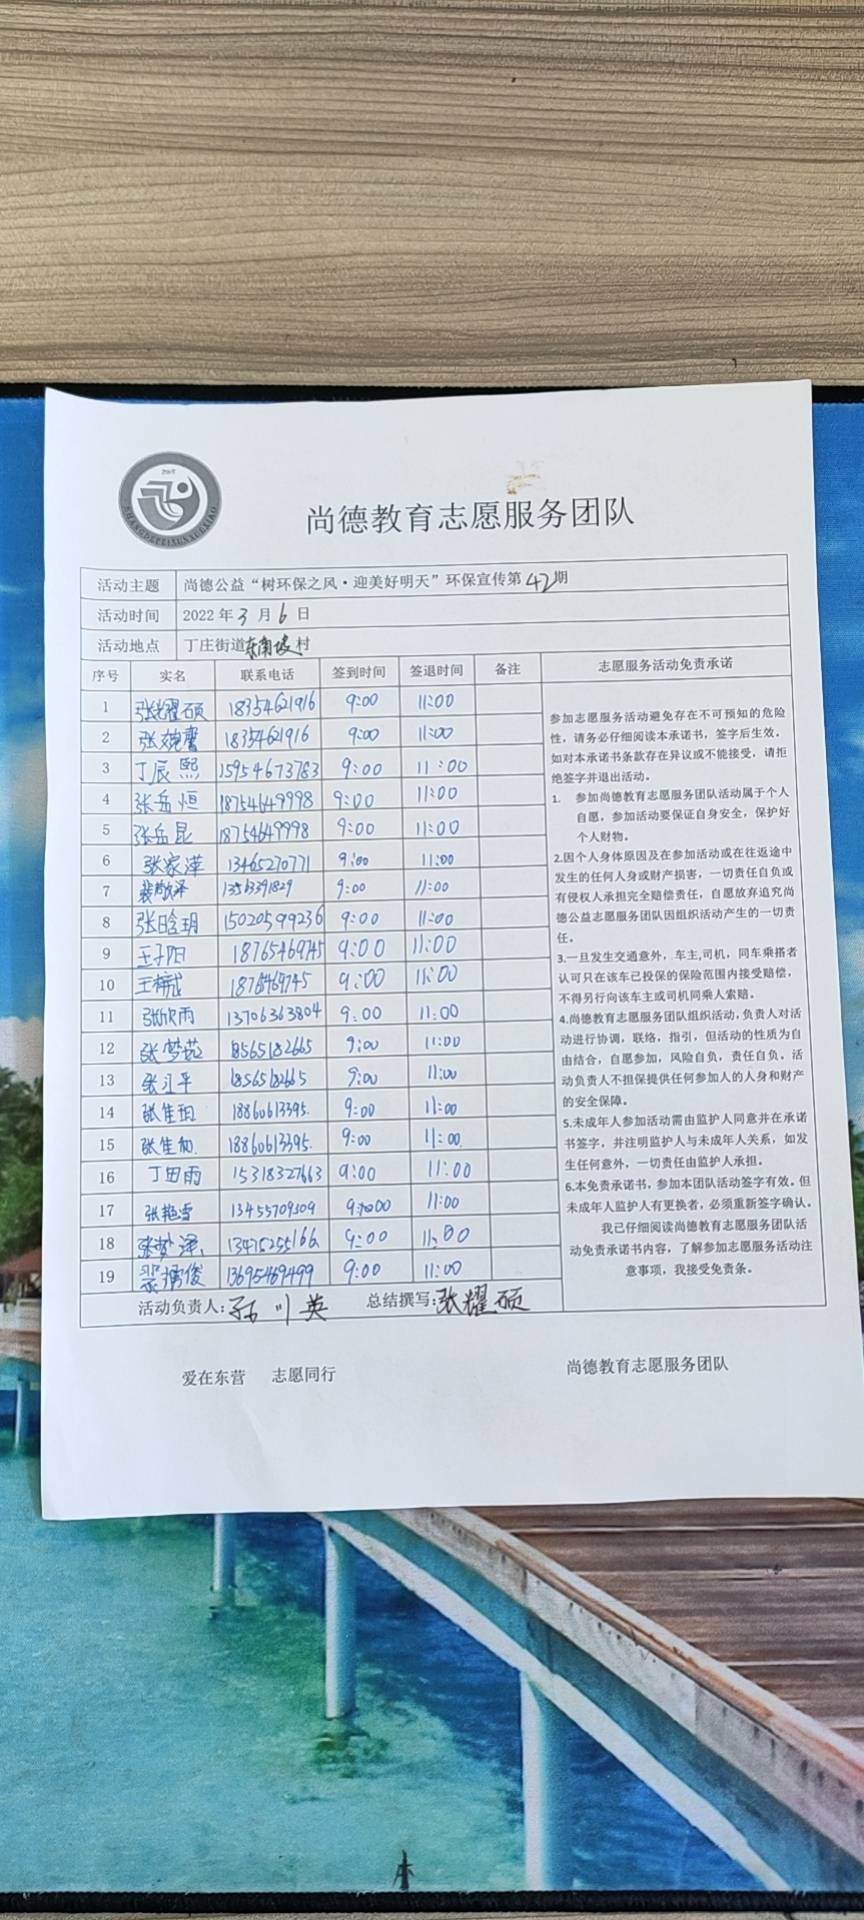 尚德教育志愿服务团队
活动主题 尚德公益“树环保之风·迎美好明天”环保宣传第42期
活动时间 2022年3月6日
活动地点 丁庄街道东南坡村
序号 实名 联系电话 签到时间 签退时间 备注 志愿服务活动免责承诺
1 张耀硕 18354621916 9:00 11:00
2 张婉馨 18354621916 9:00 11:00
3 丁辰熙 15954673783 9:00 11:00
4 张岳恒 18754649998 9:00 11:00
5 张岳昆 18754649998 9:00 11:00
6 张家泽 13465270771 9:00 11:00
7 13563391829 9:00 11:00
8 张晗玥 15020599236 9:00 11:00
9 王子阳 18765469745 9:00 11:00
10 王梓诚 1876469745 9:00 11:00
11 张欣雨 13706363804 9:00 11:00
12 张梦茹 18565182665 9:00 11:00
13 张江平 18565182665 9:00 11:00
14 张佳 18860613395. 9:00 11:00
15 张佳 18860613395. 9:00 11:00
16 丁田雨 15318327663 9:00 11:00
17 张艳雪 13455709309 9:00 11:00
18 张梦泽 13475255166 9:00 11:00
19 裴擒俊 13695469499 9:00 11:00
参加志愿服务活动避免存在不可预知的危险
性，请务必仔细阅读本承诺书，签字后生效。
如对本承诺书条款存在异议或不能接受，请拒
绝签字并退出活动。
1. 参加尚德教育志愿服务团队活动属于个人
自愿，参加活动要保证自身安全，保护好
个人财物。
2.因个人身体原因及在参加活动或在往返途中
发生的任何人身或财产损害，一切责任自负或
有侵权人承担完全赔偿责任，自愿放弃追究尚
德公益志愿服务团队因组织活动产生的一切责
任。
3.一旦发生交通意外，车主,司机，同车乘搭者
认可只在该车已投保的保险范围内接受赔偿，
不得另行向该车主或司机同乘人索赔。
4.尚德教育志愿服务团队组织活动,负责人对活
动进行协调，联络，指引，但活动的性质为自
由结合，自愿参加，风险自负，责任自负。活
动负责人不担保提供任何参加人的人身和财产
的安全保障。
5.未成年人参加活动需由监护人同意并在承诺
书签字，并注明监护人与未成年人关系，如发
生任何意外，一切责任由监护人承担。
6.本免责承诺书，参加本团队活动签字有效。但
未成年人监护人有更换者，必须重新签字确认。
我已仔细阅读尚德教育志愿服务团队活
动免责承诺书内容，了解参加志愿服务活动注
意事项，我接受免责条。
活动负责人：孙川英 总结撰写：张耀硕
爱在东营 志愿同行 尚德教育志愿服务团队